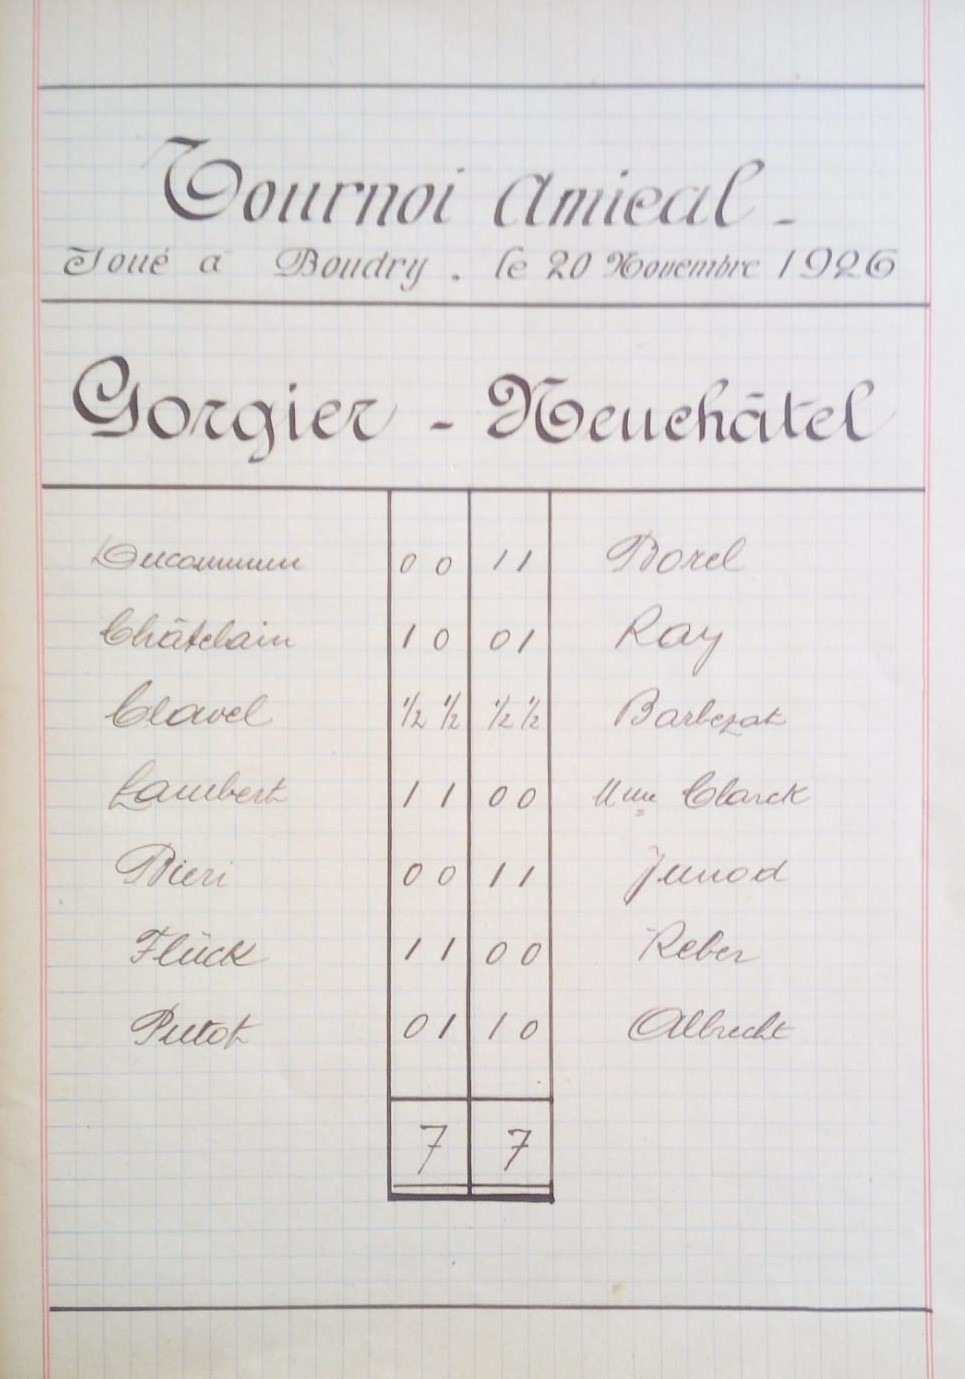 Tournoi Amical -
Joué à Boudry . le 20 Novembre 1926
Gorgier - Neuchâtel
Ducommun 0 0 1 1 Borel
Châtelain 1 0 0 1 Ray
Clavel ½ ½ ½ ½ Barbezat
Lambert 1 1 0 0 Mme Clarck
Bieri 0 0 1 1 Junod
Flück 1 1 0 0 Reber
Putot 0 1 1 0 Albrecht
7 7